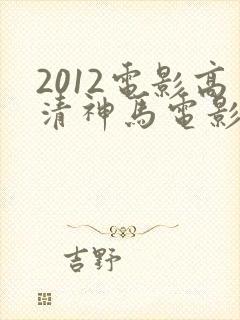 2012電影高
清神馬電影
吉野